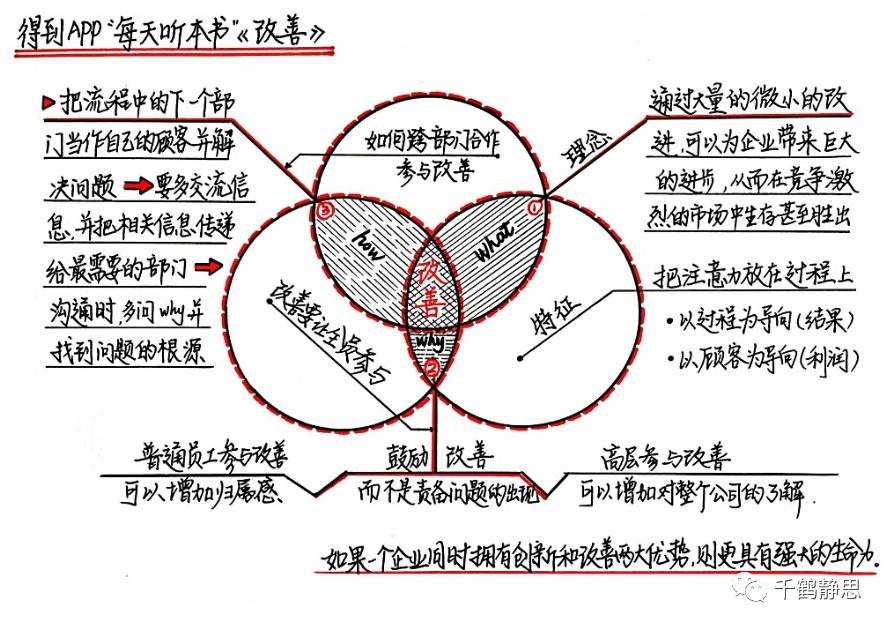 得到APP"每天听本书"《改善》
把流程中的下一个部
门当作自己的顾客并解
决问题 要多交流信
息,并把相关信息传递
给最需要的部门
沟通时,多问why并
找到问题的根源
如何跨部门合作
参与改善
理念
通过大量的微小的改
进,可以为企业带来巨大
的进步,从而在竞争激
烈的市场中生存甚至胜出
③
①
how
what
改善
why
②
特征
把注意力放在过程上
•以过程为导向(结果)
•以顾客为导向(利润)
改善要让全员参与
普通员工参与改善
可以增加归属感
鼓励改善
而不是责备问题的出现
高层参与改善
可以增加对整个公司的了解.
如果一个企业同时拥有创新和改善两大优势,则更具有强大的生命力.
千鹤静思